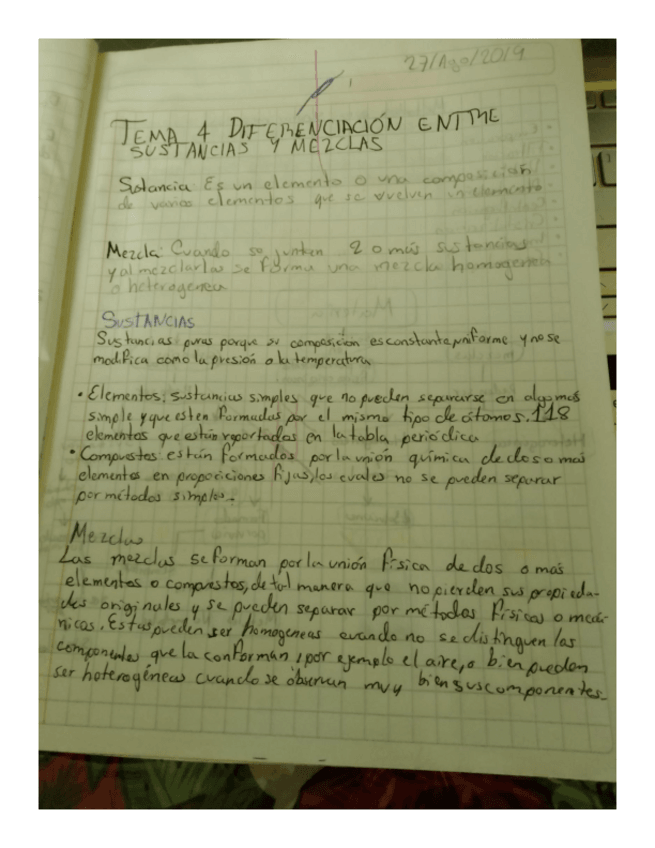 27/Ago/2019
TEMA 4 DIFERENCIACIÓN ENTRE
SUSTANCIAS Y MEZCLAS
Sustancia Es un elemento o una composición
de varios elementos que se vuelven un elemento
Mezcla: Cuando se junten 2 o más sustancias
y al mezclarlas se forma una mezcla homogenea
o heterogenea
SUSTANCIAS
Sustancias puras porque su composicion es constante, uniforme y no se
modifica como la presión o la temperatura
• Elementos: sustancias simples que no pueden separarse en algo más
simple y que esten formadas por el mismo tipo de átomos. 118
elementos que están reportadas en la tabla periodica
• Compuestos están formados por la unión química de dos o mas
elementos en proporciones fijas, los cuales no se pueden separar
por métodos simples.
Mezclas
Las mezclas se forman por la unión física de dos o más
elementos o compuestos, de tal manera que no pierden sus propieda-
des originales y se pueden separar por métodos físicos o mecá-
nicos. Estas pueden ser homogeneas cuando no se distinguen las
componentes que la conforman, por ejemplo el aire, o bien pueden
ser heterogéneas cuando se observan muy bien sus componentes.